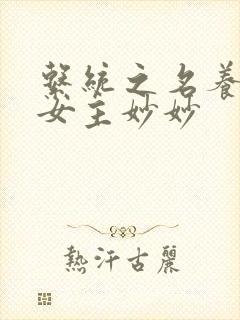 繫統之名養
女主妙妙
熱汗古麗